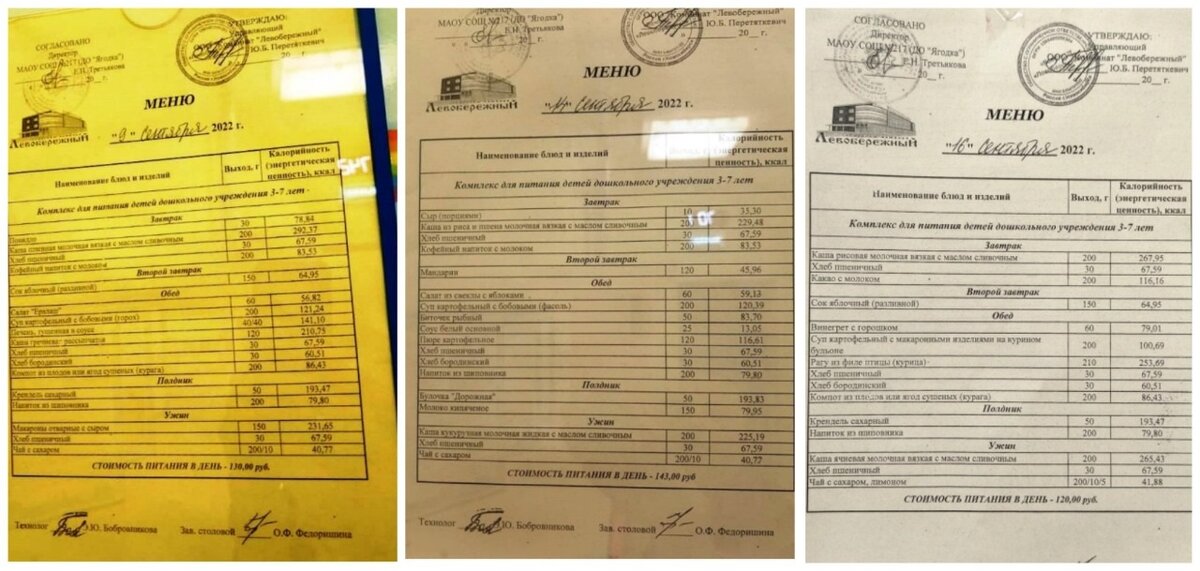 СОГЛАСОВАНО
Директор
МАОУ СОШ №217 (ДО "Ягодка")
Е.Н. Третьякова
20__ г.
УТВЕРЖДАЮ:
Управляющий
ООО "Комбинат "Левобережный"
Ю.Б. Перетяткевич
20__ г.
Левобережный
МЕНЮ
"9" сентября 2022 г.
Наименование блюд и изделий Выход, г Калорийность (энергетическая ценность), ккал
Комплекс для питания детей дошкольного учреждения 3-7 лет
Завтрак
Повидло 30 78,84
Каша пшенная молочная вязкая с маслом сливочным 200 292,37
Хлеб пшеничный 30 67,59
Кофейный напиток с молоком 200 83,53
Второй завтрак
Сок яблочный (разливной) 150 64,95
Обед
Салат "Ералаш" 60 56,82
Суп картофельный с бобовыми (горох) 200 121,24
Печень, тушенная в соусе 40/40 141,10
Каша гречнева: рассыпчатая 120 210,75
Хлеб пшеничный 30 67,59
Хлеб бородинский 30 60,51
Компот из плодов или ягод сушеных (курага) 200 86,43
Полдник
Крендель сахарный 50 193,47
Напиток из шиповника 200 79,80
Ужин
Макароны отварные с сыром 150 231,65
Хлеб пшеничный 30 67,59
Чай с сахаром 200/10 40,77
СТОИМОСТЬ ПИТАНИЯ В ДЕНЬ - 130,00 руб.
Технолог Ю. Бобровникова Зав. столовой О.Ф. Федоришина
Директор
МАОУ СОШ №217 (ДО "Ягодка")
Е.Н. Третьякова
20__ г.
ООО "Комбинат "Левобережный"
Ю.Б. Перетяткевич
20__ г.
Левобережный
МЕНЮ
"14" сентября 2022 г.
Наименование блюд и изделий Выход, г Калорийность (энергетическая ценность), ккал
Комплекс для питания детей дошкольного учреждения 3-7 лет
Завтрак
Сыр (порциями) 10 35,30
Каша из риса и пшена молочная вязкая с маслом сливочным 200 229,48
Хлеб пшеничный 67,59
Кофейный напиток с молоком 200 83,53
Второй завтрак
Мандарин 120 45,96
Обед
Салат из свеклы с яблоками 60 59,13
Суп картофельный с бобовыми (фасоль) 200 120,39
Биточек рыбный 50 83,70
Соус белый основной 25 13,05
Пюре картофельное 120 116,61
Хлеб пшеничный 30 67,59
Хлеб бородинский 30 60,51
Напиток из шиповника 200 79,80
Полдник
Булочка "Дорожная" 50 193,83
Молоко кипяченое 150 79,95
Ужин
Каша кукурузная молочная жидкая с маслом сливочным 200 225,19
Хлеб пшеничный 30 67,59
Чай с сахаром 200/10 40,77
СТОИМОСТЬ ПИТАНИЯ В ДЕНЬ - 143,00 руб
Технолог Ю. Бобровникова Зав. столовой О.Ф. Федоришина
СОГЛАСОВАНО
Директор
МАОУ СОШ №217 (ДО "Ягодка")
Е.Н. Третьякова
20__ г.
УТВЕРЖДАЮ:
Управляющий
ООО "Комбинат "Левобережный"
Ю.Б. Перетяткевич
20__ г.
Левобережный
МЕНЮ
"16" сентября 2022 г.
Наименование блюд и изделий Выход, г Калорийность (энергетическая ценность), ккал
Комплекс для питания детей дошкольного учреждения 3-7 лет
Завтрак
Каша рисовая молочная вязкая с маслом сливочным 200 267,95
Хлеб пшеничный 30 67,59
Какао с молоком 200 116,16
Второй завтрак
Сок яблочный (разливной) 150 64,95
Обед
Винегрет с горошком 60 79,01
Суп картофельный с макаронными изделиями на курином бульоне 200 100,69
Рагу из филе птицы (курица) 210 253,69
Хлеб пшеничный 30 67,59
Хлеб бородинский 30 60,51
Компот из плодов или ягод сушеных (курага) 200 86,43
Полдник
Крендель сахарный 50 193,47
Напиток из шиповника 200 79,80
Ужин
Каша ячневая молочная вязкая с маслом сливочным 200 265,43
Хлеб пшеничный 30 67,59
Чай с сахаром, лимоном 200/10/5 41,88
СТОИМОСТЬ ПИТАНИЯ В ДЕНЬ - 120,00 руб.